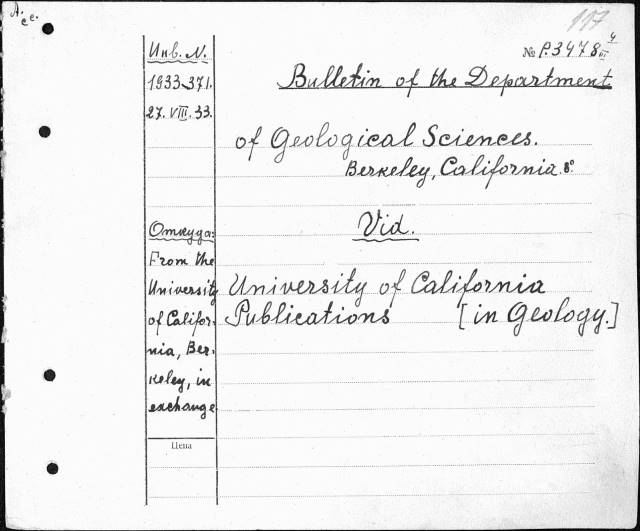 Acc.
117
Инв. N.
№ P.3478
1933-371.
27.VIII.33.
Bulletin of the Department
of Geological Sciences.
Berkeley, California. 8°
Откуда:
Vid.
From the
University
of Califor-
nia, Ber-
keley, in
exchange
University of California
Publications [in Geology.]
Цена